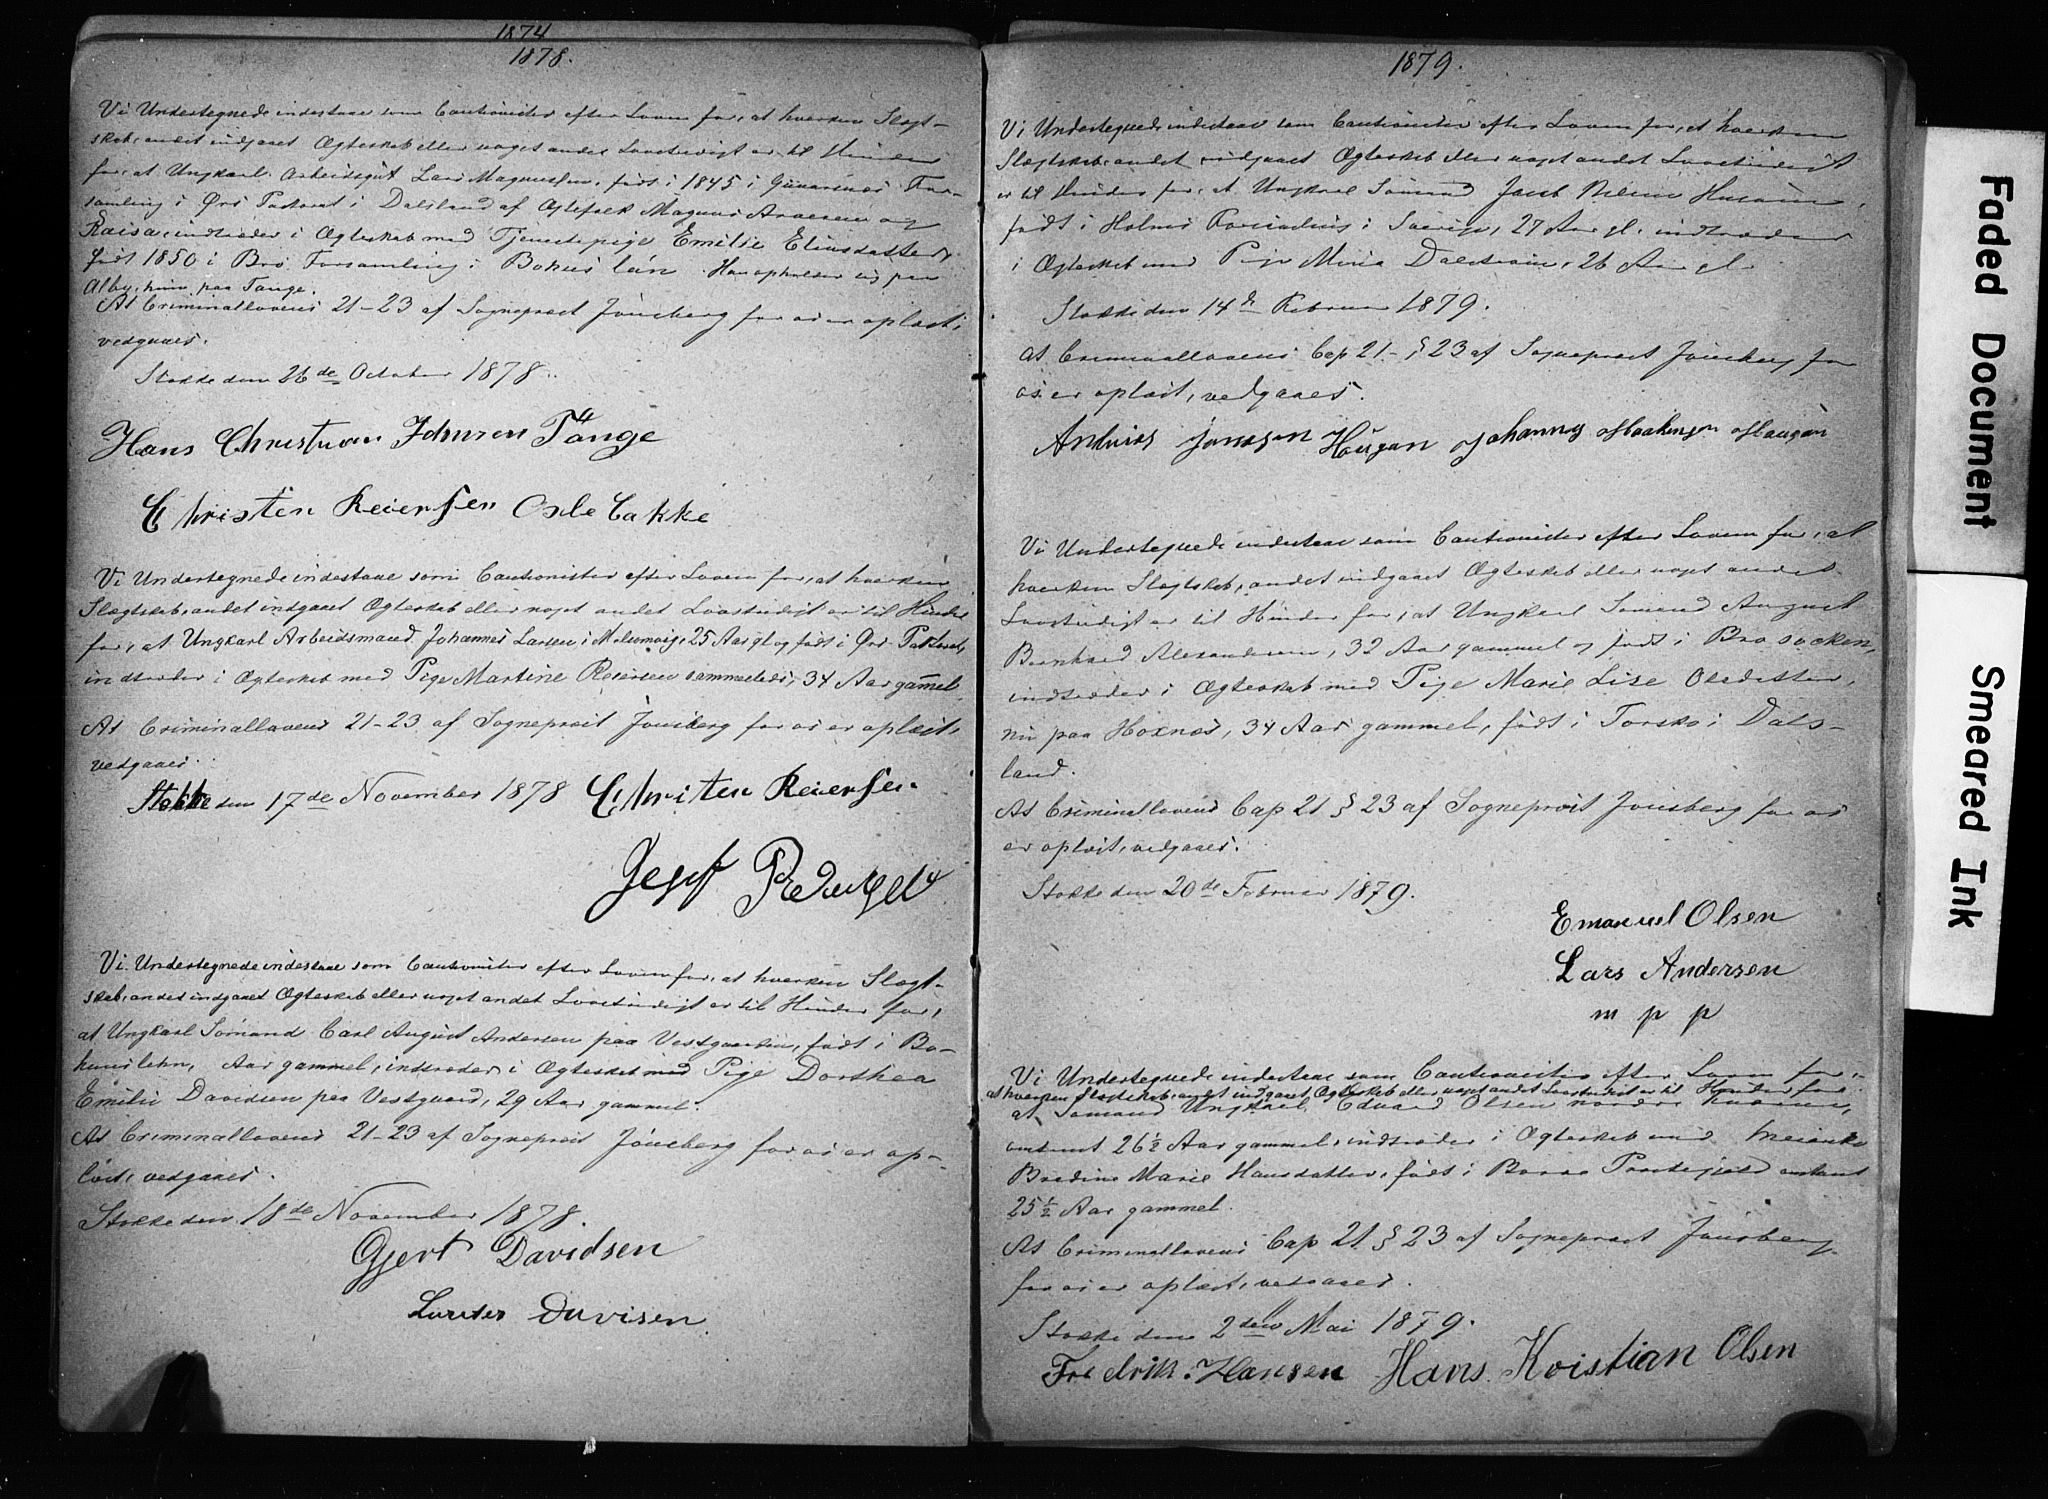 1874
1878.
Vi Undertegnede indestaae som Cautionister efter Loven for, at hverken Slægt-
skab, andet indgaaet Ægteskab eller noget andet Lovstridigt er til Hinder
for, at Ungkarl Arbeidsgut Lars Magnussen, født i 1845 i Gunarsnæs For-
samling i Ørs Pastorat i Dalsland af Ægtefolk Magnus og
Kaisa, indtræder i Ægteskab med Tjenestepige Emilie Eliasdatter,
født 1850 i Bro Forsamling i Bohus län. Han opholder sig paa
Alby, hun paa Tange.
At Criminallovens 21-23 af Sogneprest Jonsberg for os er oplæst,
vedgaaes.
Stokke den 26de October 1878.
Hans Christian Johnsen Tange
Christen Reiersen Oxle Bakke
Vi Undertegnede indestaae som Cautionister efter Loven for, at hverken
Slægtskab, andet indgaaet Ægteskab eller noget andet Lovstridigt er til Hinder
for, at Ungkarl Arbeidsmand Johannes Larsen i Melsomvig, 25 Aar gl og født i Ørs Pastorat,
indtræder i Ægteskab med Pige Martine Reiersen sammesteds, 34 Aar gammel
At Criminallovens 21-23 af Sogneprest Jonsberg for os er oplæst,
vedgaaes.
Stokke den 17de November 1878 Christen Reiersen
Vi Undertegnede indestaae som Cautionister efter Loven for, at hverken Slægt-
skab, andet indgaaet Ægteskab eller noget andet Lovstridigt er til Hinder for,
at Ungkarl Sømand Carl August Andersen paa Vestgaarden, født i Bo-
huuslehn, Aar gammel, indtræder i Ægteskab med Pige Dorthea
Emilie Davidsen paa Vestgaard, 29 Aar gammel.
At Criminallovens 21-23 af Sogneprest Jonsberg for os er op-
læst, vedgaaes.
Stokke den 18de November 1878.
Gjert Davidsen
Davisen
1879.
Vi Undertegnede indestaae som Cautionister efter Loven for, at hverken
Slægtskab, andet indgaaet Ægteskab eller noget andet Lovstridigt
er til Hinder for, at Ungkarl Sømand Jacob
født i Holms i Sverige, 27 Aar gl. indtræder
i Ægteskab med Pige Mina 26 Aar gl.
Stokke den 14de Februar 1879.
At Criminallovens Cap 21 § 23 af Sogneprest Jonsberg for
os er oplæst, vedgaaes.
Antnias Jonssen Haugan Johannes Haakensen Haugan
Vi Undertegnede indestaae som Cautionister efter Loven for, at
hverken Slægtskab, andet indgaaet Ægteskab eller noget andet
Lovstridigt er til Hinder for, at Ungkarl Sømand August
Bernhard Alexandersen, 32 Aar gammel og født i Bro socken,
indtræder i Ægteskab med Pige Marie Lise Olsdatter,
nu paa Hoxnæs, 34 Aar gammel, født i Torsko i Dals-
land.
At Criminallovens Cap 21 § 23 af Sogneprest Jonsberg for os
er oplæst, vedgaaes.
Stokke den 20de Februar 1879.
Emanuel Olsen
Lars Andersen
m p p
Vi Undertegnede indestaae som Cautionister efter Loven for,
at hverken Slægtskab, andet indgaaet Ægteskab eller noget andet Lovstridigt er til Hinder for,
at Sømand Ungkarl Edvard Olsen nordre
omtrent 26½ Aar gammel, indtræder i Ægteskab med
Bredine Marie Hansdatter, født i Borre Præstegjeld omtrent
25½ Aar gammel.
At Criminallovens Cap 21 § 23 af Sogneprest Jonsberg
for os er oplæst, vedgaaes.
Stokke den 2den Mai 1879.
Fredrik. Hansen Hans Kristian Olsen
Faded Document
Smeared Ink